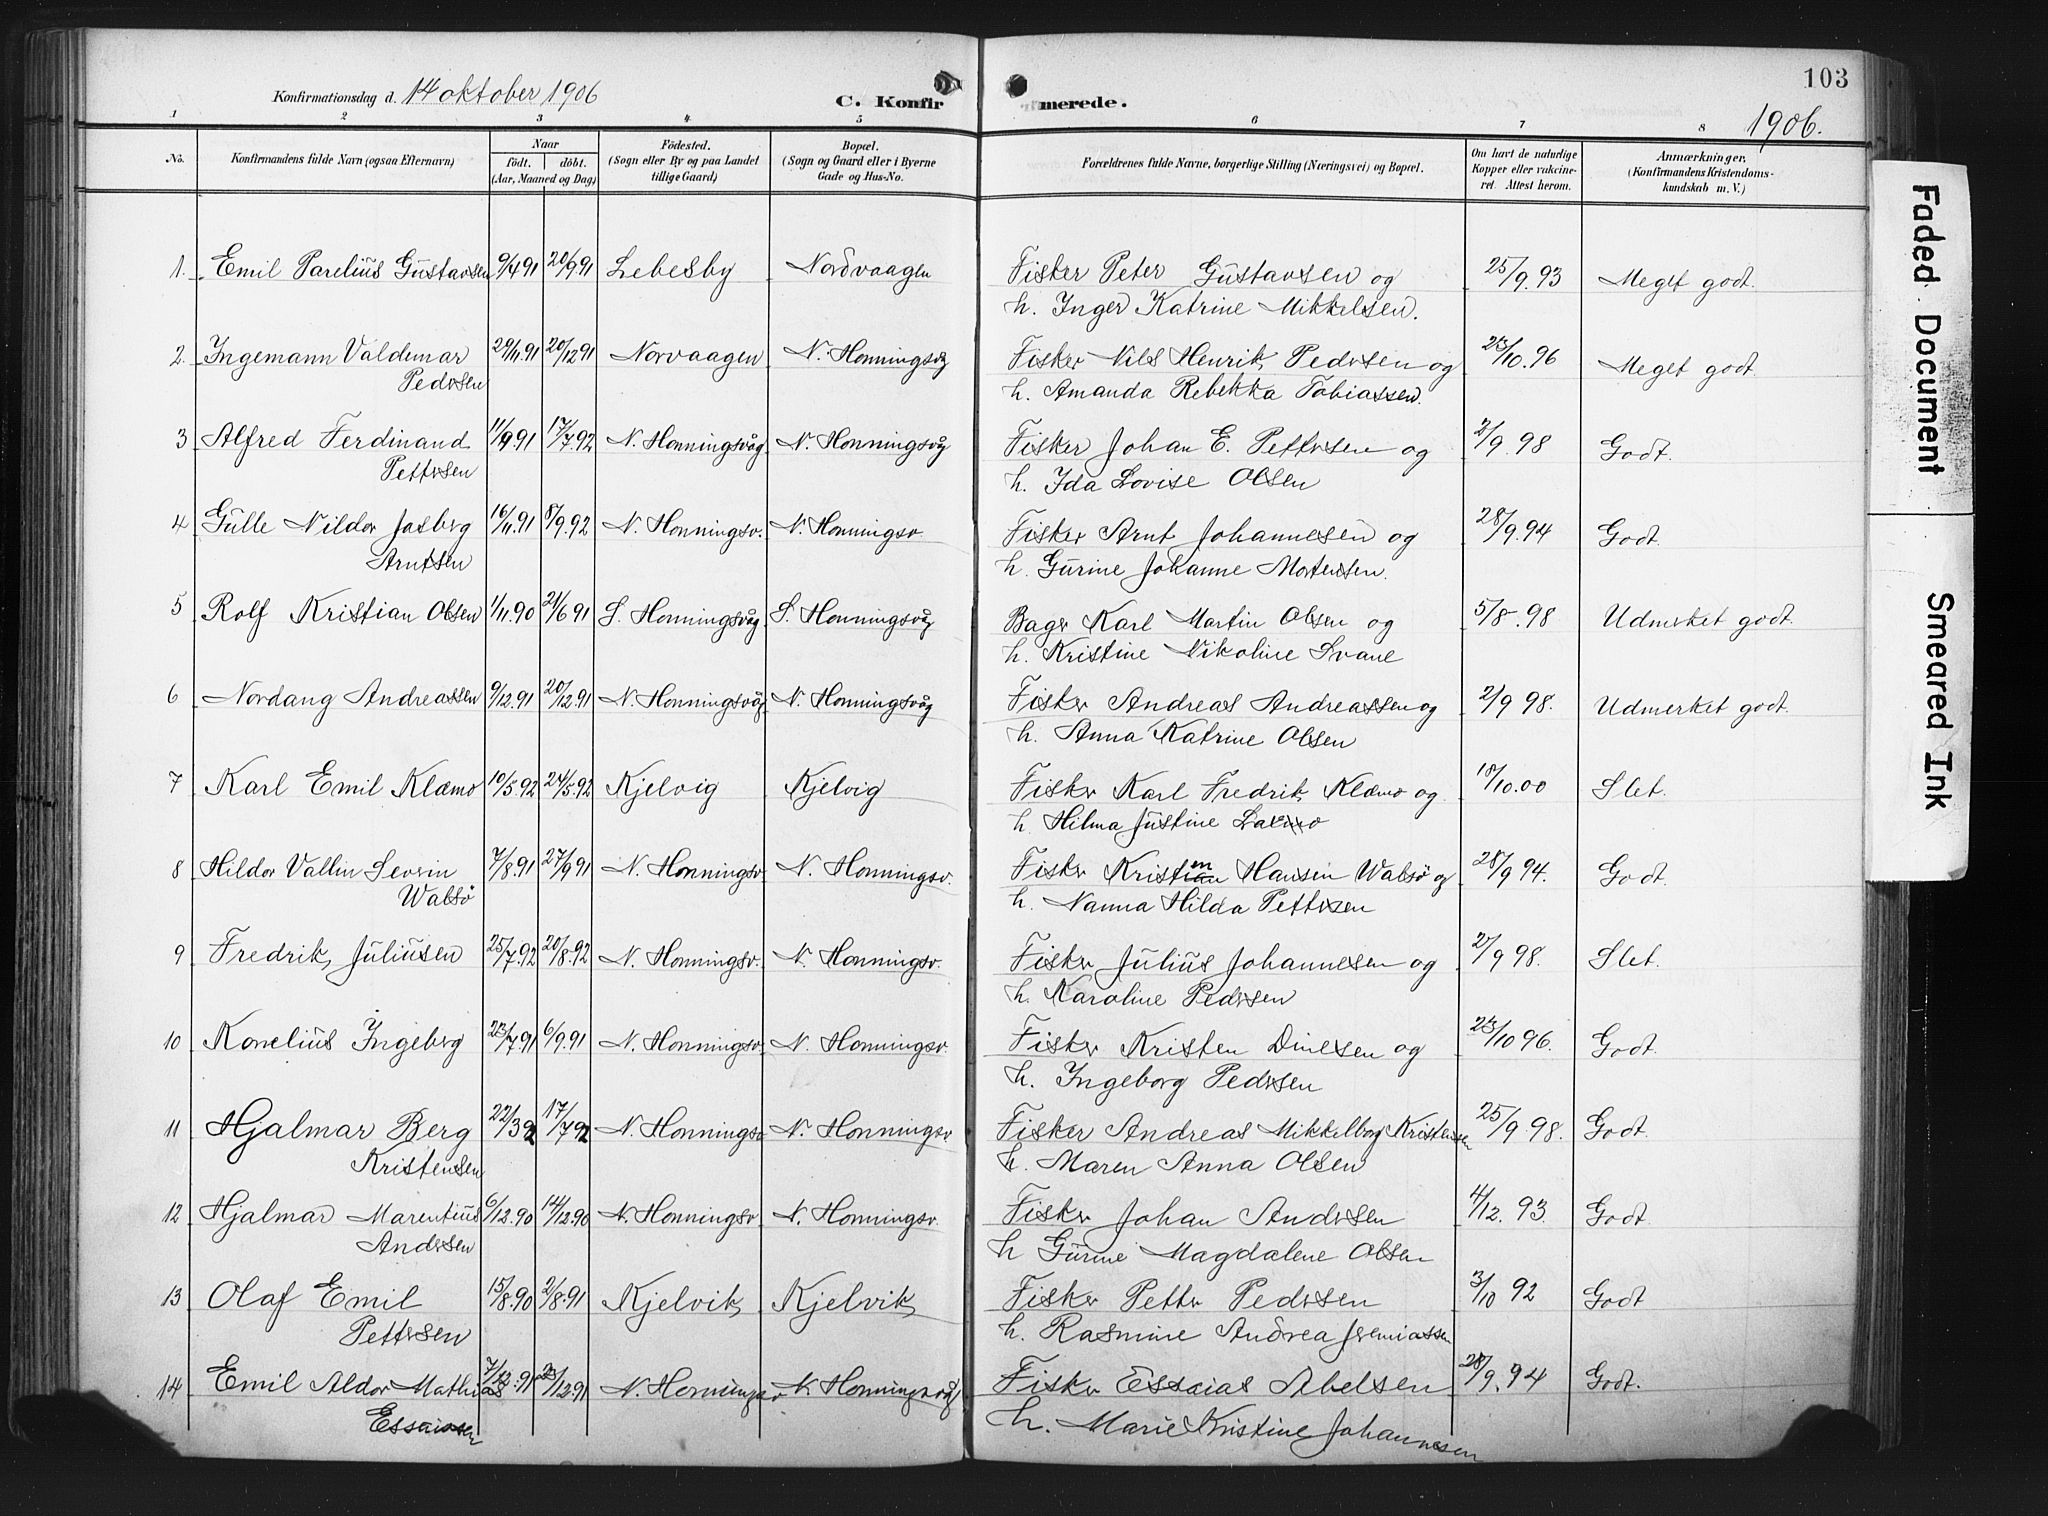 Konfirmationsdag d. 14 oktober 1906
C. Konfir merede.
103
1906.
1 2 3 4 5 6 7 8
No. Konfirmandens fulde Navn (ogsaa Efternavn) Naar födt. döbt. (Aar, Maaned og Dag) Födested. (Sogn eller By og paa Landet tillige Gaard) Bopæl. (Sogn og Gaard eller i Byerne Gade og Hus-No. Forældrenes fulde Navne, borgerlige Stilling (Næringsvei) og Bopæl. Om havt de naturlige Kopper eller vakcineret. Attest herom. Anmærkninger, (Konfirmandens Kristendomskundskab m. V.)
1. Emil Parelius Gustavsen 9/4 91 20/9 91 Lebesby Nordvaagen Fisker Peter Gustavsen og 25/9. 93 Meget godt.
h. Inger Katrine Mikkelsen.
2. Ingemann Valdemar 29/11.91 20/12 91 Norvaagen N. Honningsvg Fisker Nils Henrik Pedersen og 23/10. 96 Meget godt
Pedersen h. Amanda Rebekka Tobiassen.
3 Alfred Ferdinand 11/9.91 17/7.92 N. Honningsvåg N. Honningsvåg Fisker Johan E. Pettersen og 2/9. 98 Godt.
Pettersen h. Ida Lovise Olsen
4 Gulle Nildor Jasberg 16/11.91 8/9.92 N. Honningsv. N. Honningsv. Fisker Arnt Johannesen og 28/9.94 Godt.
Arntsen h. Gurine Johanne Mortensen.
5 Rolf Kristian Olsen 1/11.90 21/6 91 S. Honningsvåg S. Honningsvåg Bager Karl Martin Olsen og 5/8. 98 Udmerket godt.
h. Kristine Nikoline Svane
6 Nordang Andreassen 9/12.91 20/12.91 N. Honningsvåg N. Honningsvåg Fisker Andreas Andreassen og 2/9 98. Udmerket godt.
h. Anna Katrine Olsen
7 Karl Emil Klæmo 10/5.92 24/5.92 Kjelvig Kjelvig Fisker Karl Fredrik Klæmo og 18/10.00 Slet.
h. Hilma Justine
8 Hildor Vallin Severin 7/8.91 27/9 91 N. Honningsv. N. Honningsv. Fisker Kristen Hansen Walsö og 28/9 94. Godt.
Walsö h. Nanna Hilda Pettersen
9 Fredrik Juliusen 25/7.92 20/8.92 N. Honningsv. N. Honningsv. Fisker Julius Johannesen og 2/9 98. Slet.
h. Karoline Pedersen
10 Konelius Ingeberg 23/7.91 6/9.91 N. Honningsv. N. Honningsv. Fisker Kristen Dinesen og 23/10 96. Godt.
h. Ingeborg Pedersen
11 Hjalmar Berg 22/3 92 17/7 92 N. Honningsv N. Honningsv Fisker Andreas Mikkelborg Kristensen 25/9. 98. Godt.
Kristensen h. Maren Anna Olsen
12 Hjalmar Marentius 6/12.90 14/12.90 N. Honningsv. N. Honningsv. Fisker Johan Andersen 4/12. 93. Godt.
Andersen h Gurine Magdalene Olsen
13 Olaf Emil 15/8.90 2/8.91 Kjelvik Kjelvik Fisker Petter Pedersen 3/10 92 Godt
Pettersen h. Rasmine Andrea Jeremiassen
14 Emil Aldor Mathias 7/12.91 23/12.91 N. Honningsv N. Honningsvåg Fisker Essaias Abelsen 28/9. 94 Godt.
Essaiassen h. Marie Kristine Johannesen
Faded Document
Smeared Ink